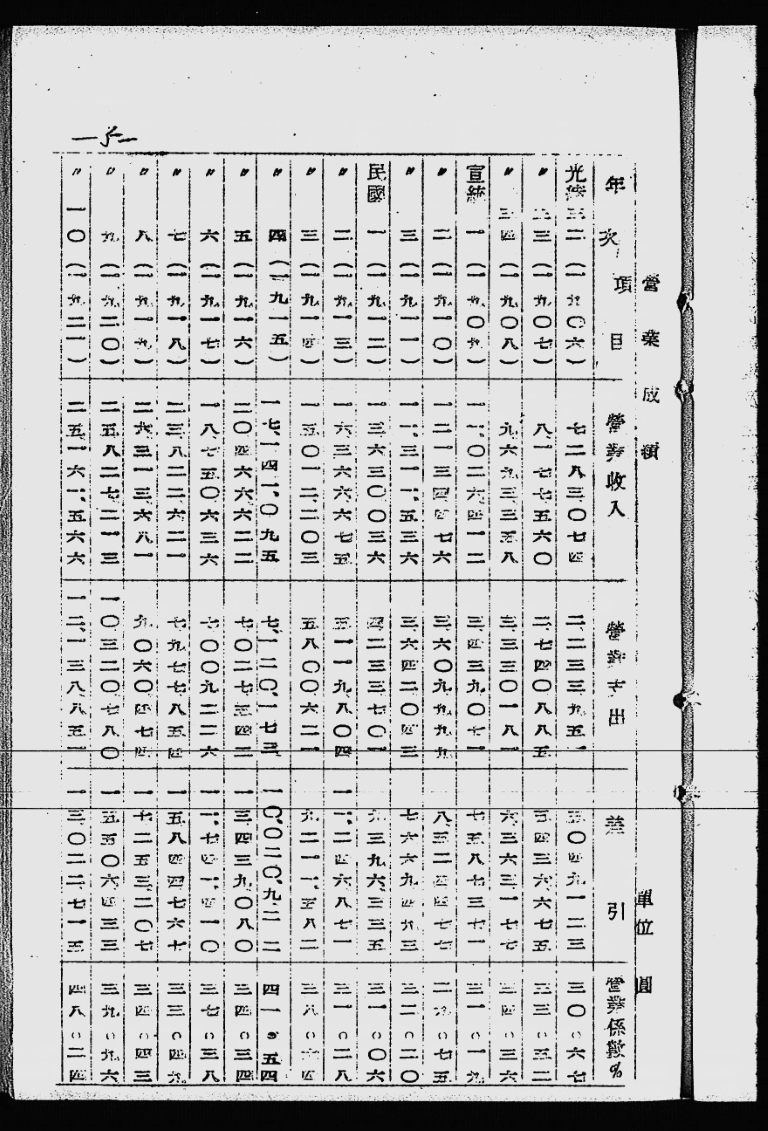 營業成績　單位 圓
年次 項目 營業收入 營業支出 差引 營業係數%
光緒三二(一九〇六) 七二八三〇七四 二、二三三九五一 五〇四九一二三 三〇。六七
〃 三三(一九〇七) 八、一七七五六〇 二、七四〇八八五 五四三六六七五 三三。五二
〃 三四(一九〇八) 九六九三三五八 三、三三〇一八一 六三六三一七七 三四。三六
宣統 一(一九〇九) 一一、〇二六四一二 三、四三九〇七一 七五八七三七一 三一。一九
〃 二(一九一〇) 一二一三四四七六 三、六〇九九九九 八、五二四四七七 二九。七五
〃 三(一九一一) 一一、三一一、五三六 三、六四二〇四三 七六六九四九三 三二。二〇
民國 一(一九一二) 一三六三〇〇三六 四二三三七〇一 九三九六、三三五 三一。〇六
〃 二(一九一三) 一六三六六六七五 五一一九八〇四 一一、二四六八七一 三一。二八
〃 三(一九一四) 一五〇一二、二〇三 五八〇〇六二一 九、二一一、五八二 三八。六四
〃 四(一九一五) 一七、一四一、〇九五 七、一二〇、一七三 一〇、〇二〇、九二二 四一。五四
〃 五(一九一六) 二〇四六六六二二 七〇二七五四二 一三四三九〇八〇 三四。三四
〃 六(一九一七) 一八、七五〇六三六 七〇〇九二二六 一一、七四一、四一〇 三七。三八
〃 七(一九一八) 二三八二二六二一 七九七七八五四 一五八四四七六七 三三。四九
〃 八(一九一九) 二六三一三六八一 九〇六〇四七四 一七二五三、二〇七 三四。四三
〃 九(一九二〇) 二五八二七二一三 一〇三二〇七八〇 一五五〇六四三三 三九。九六
〃 一〇(一九二一) 二五一六一、五六六 一二、一三八八五一 一三〇二二、七一五 四八。二四